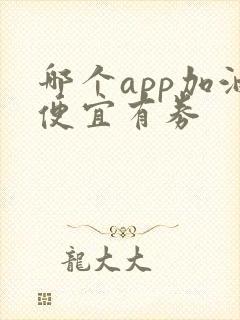 哪个app加油
便宜有券
龍大大